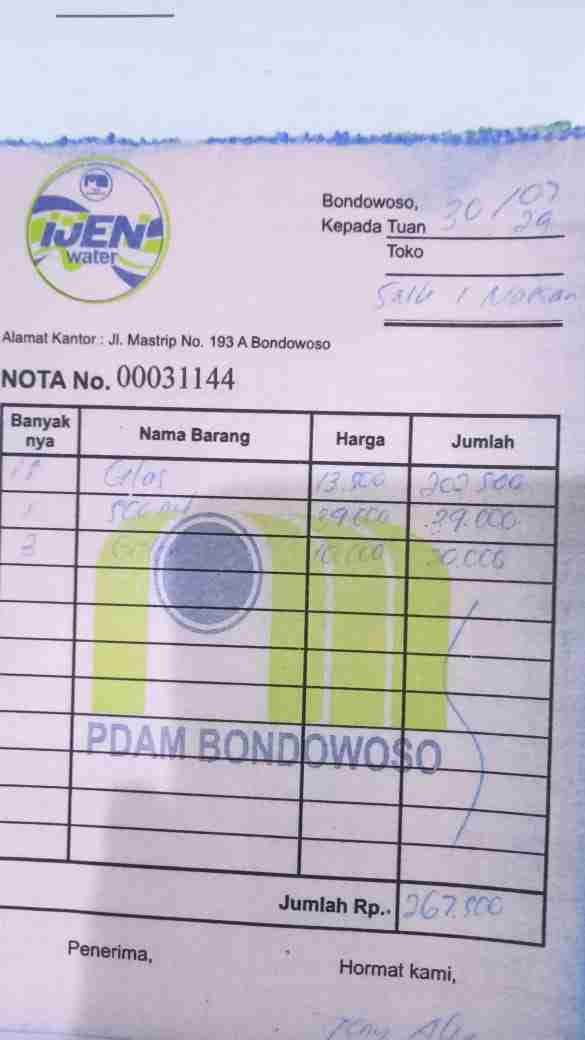 IJEN
water
Bondowoso, 30/07
Kepada Tuan 29
Toko
Alamat Kantor : Jl. Mastrip No. 193 A Bondowoso
NOTA No. 00031144
Banyak nya Nama Barang Harga Jumlah
Glas 13.500 202.500
1 39.000 .39.000
3 30.000
PDAM BONDOWOSO
Jumlah Rp.. 267.500
Penerima,
Hormat kami,